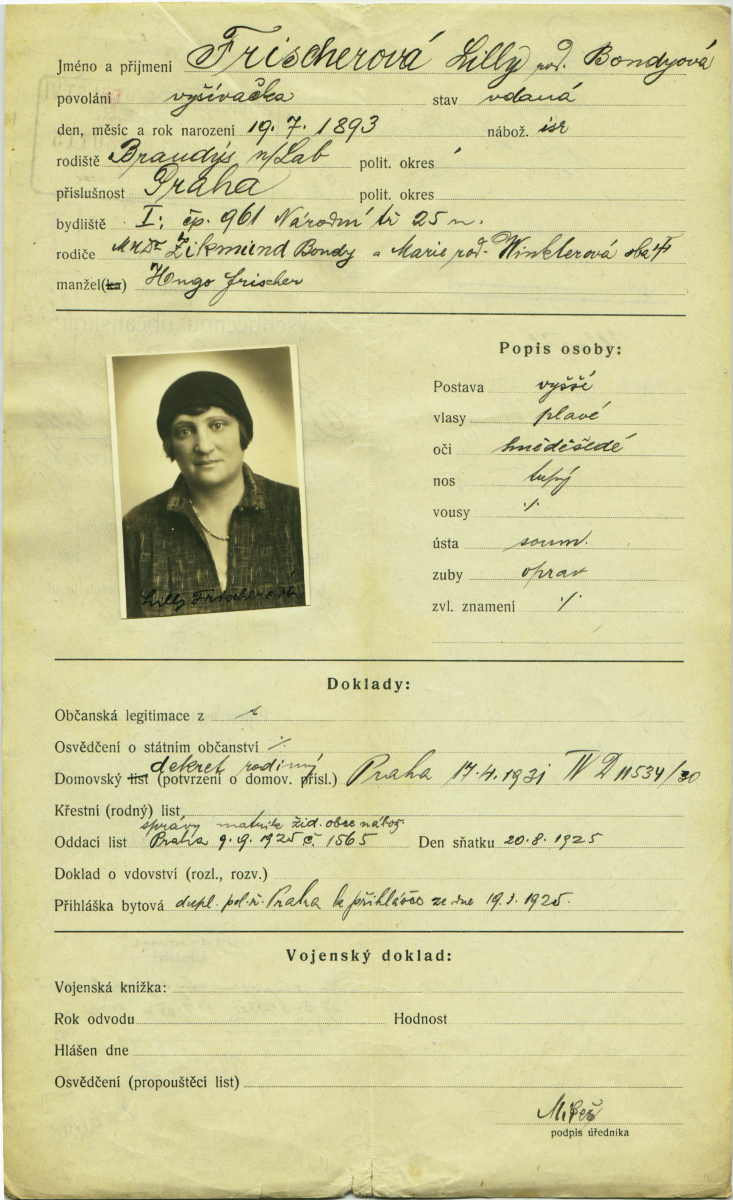 Jméno a příjmení Frischerová Lilly roz. Bondyová
povolání vyšívačka stav vdaná
den, měsíc a rok narození 19. 7. 1893 nábož. isr
rodiště Brandýs n/Lab polit. okres
příslušnost Praha polit. okres
bydliště I; čp. 961 Národní tř 25 n.
rodiče MUDr Zikmund Bondy a Marie roz. Winklerová oba
manžel(ka) Hugo Frischer
Popis osoby:
Postava vyšší
vlasy plavé
oči hnědošedé
nos tupý
vousy ·/.
ústa soum.
zuby oprav
zvl. znamení ·/.
Lilly Frischerová
Doklady:
Občanská legitimace z
Osvědčení o státním občanství ·/.
dekret rodinný
Domovský list (potvrzení o domov. přísl.) Praha 17.4.1931 IV D 11534/30
Křestní (rodný) list
správy matrik žid. obce nábož.
Oddací list Praha 9.9.1925 č. 1565 Den sňatku 20.8.1925
Doklad o vdovství (rozl., rozv.)
Přihláška bytová dupl. pol. ř. Praha k přihlášce ze dne 19.3.1925.
Vojenský doklad:
Vojenská knížka:
Rok odvodu Hodnost
Hlášen dne
Osvědčení (propouštěcí list)
podpis úředníka